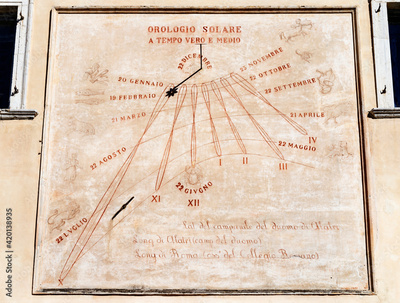 OROLOGIO SOLARE
A TEMPO VERO E MEDIO
22 DICEMBRE
20 GENNAIO
19 FEBBRAIO
21 MARZO
22 AGOSTO
22 LUGLIO
23 NOVEMBRE
22 OTTOBRE
22 SETTEMBRE
21 APRILE
22 MAGGIO
22 GIUGNO
XI
XII
I
II
III
IV
Lat. del campanile del duomo di
Long. di (camp. del duomo)
Long. di Roma (oss. del Collegio Romano)
Adobe Stock | #420138935